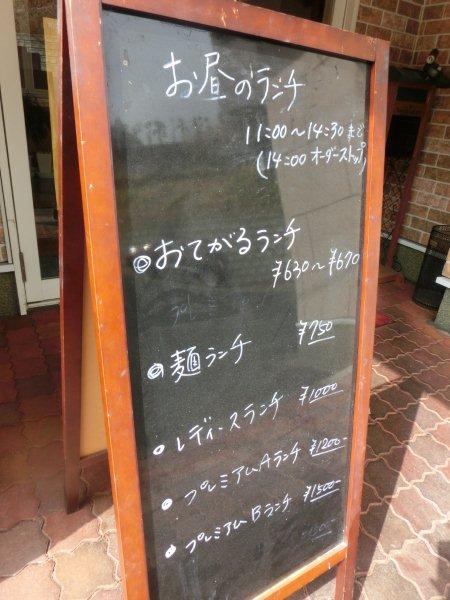 お昼のランチ
11:00～14:30まで
(14:00 オーダーストップ)
◎おてがるランチ
¥630～¥670
◎麺ランチ ¥750
○レディースランチ ¥1000
○プレミアムAランチ ¥1200-
○プレミアムBランチ ¥1500-